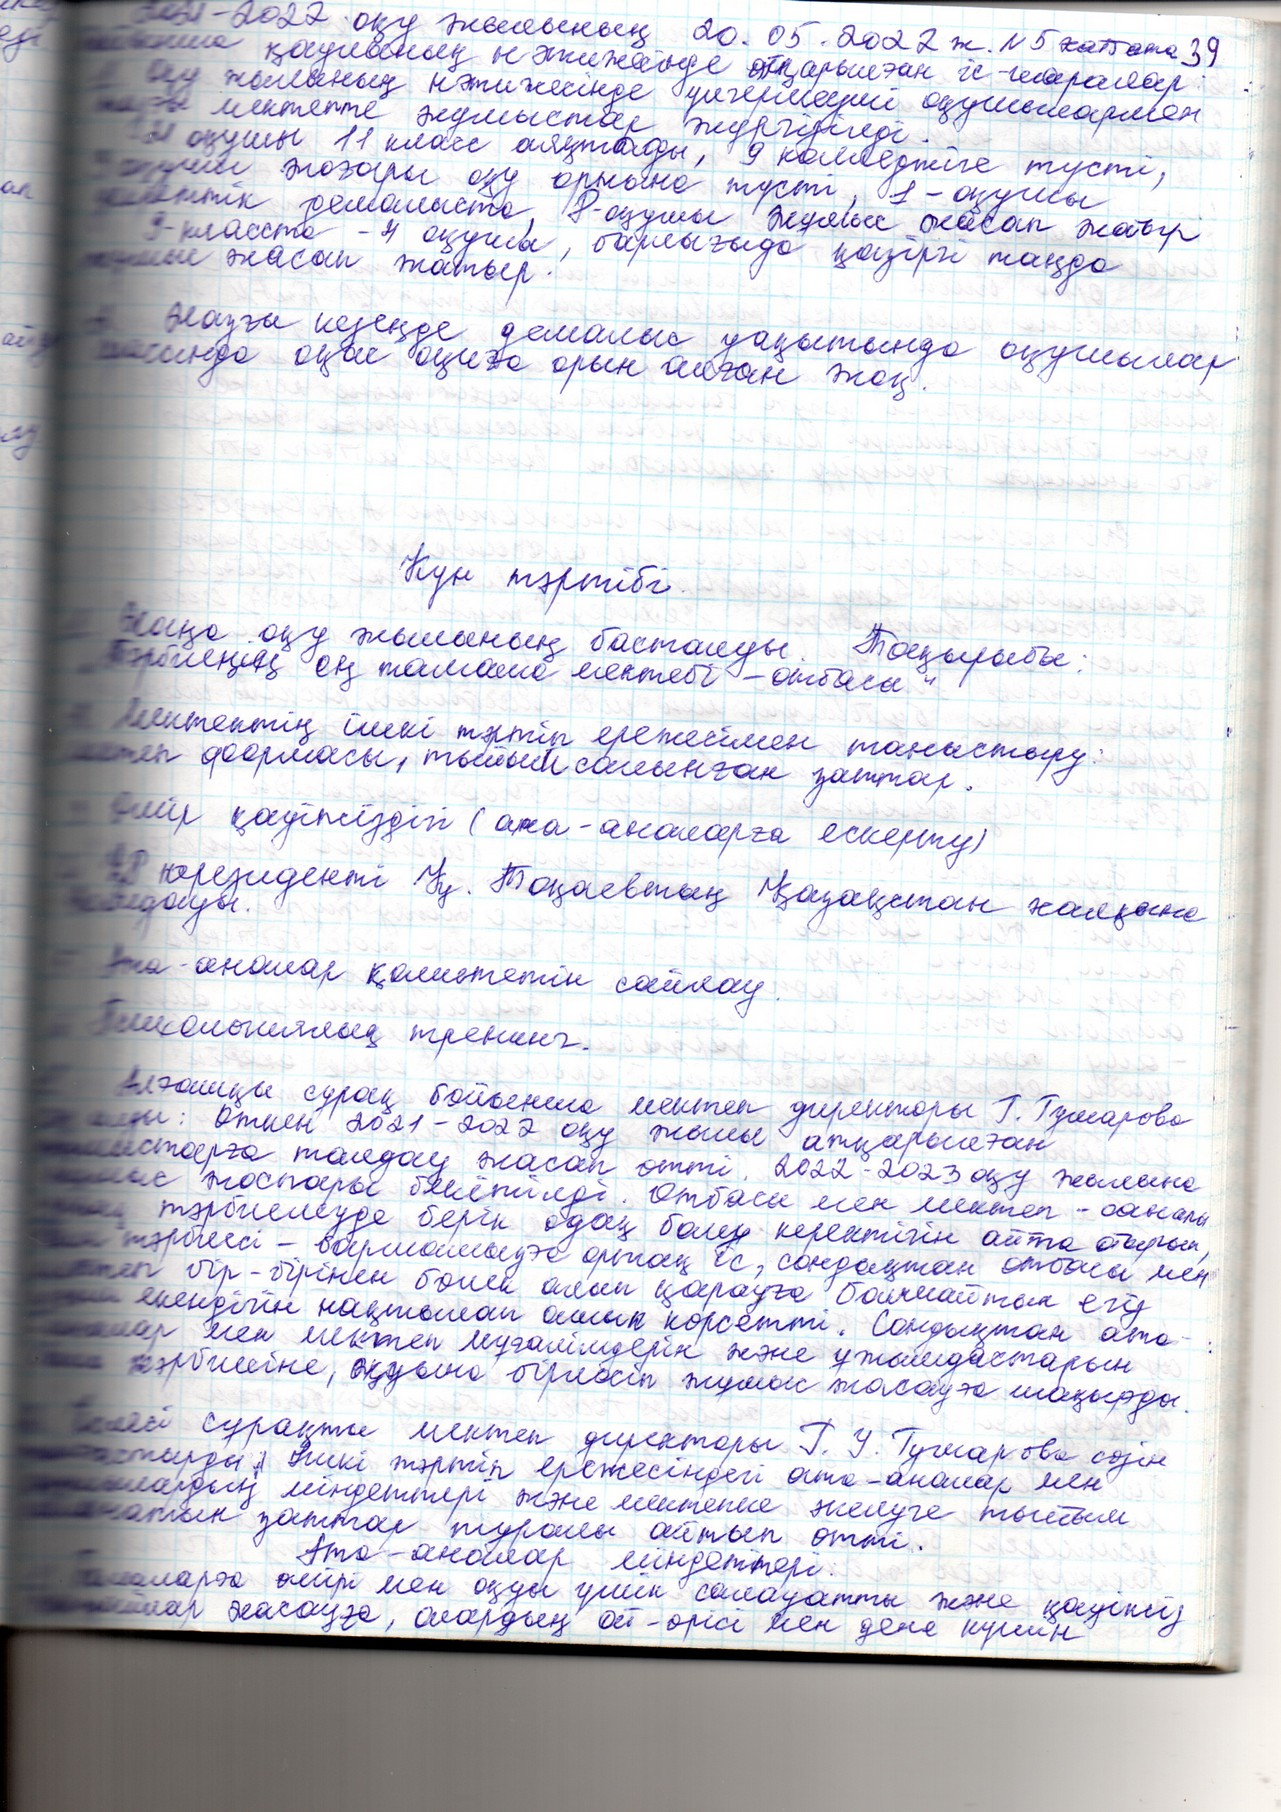 2021-2022 оқу жылының 20.05.2022 ж. №5 хаттама 39
бойынша қаулының нәтижесінде атқарылған іс-шаралар:
Оқу жылының нәтижесінде үлгермеуші оқушылармен
жазғы мектепте жұмыстар жүргізілді.
оқушы 11 класс аяқтады, 9 колледжге түсті,
оқушы жоғары оқу орнына түсті, 1-оқушы
демалыста, 8-оқушы жұмыс жасап жатыр
9-класста - 4 оқушы, барлығыда қазіргі таңда
жұмыс жасап жатыр.
Жазғы кезеңде демалыс уақытында оқушылар
арасында оқыс оқиға орын алған жоқ.
Күн тәртібі
Жаңа оқу жылының басталуы. Тақырыбы:
"Тәрбиенің ең тамаша мектебі - отбасы"
Мектептің ішкі тәртіп ережесімен таныстыру:
мектеп формасы, тыйым салынған заттар.
Өмір қауіпсіздігі (ата-аналарға ескерту)
ҚР президенті Қ. Тоқаевтың Қазақстан халқына
жолдауы.
Ата-аналар комитетін сайлау.
Психологиялық тренинг.
Алғашқы сұрақ бойынша мектеп директоры Г. Тумарова
: Өткен 2021-2022 оқу жылы атқарылған
жұмыстарға талдау жасап өтті. 2022-2023 оқу жылына
жұмыс жоспары бекітілді. Отбасы мен мектеп -
тәрбиелеуде берік одақ болу керектігін айта отырып,
тәрбиесі - баршамызға ортақ іс, сондықтан отбасы мен
мектеп бір-бірінен бөлек алып қарауға болмайтын егіз
екендігін нақтылап ашып көрсетті. Сондықтан ата-
аналар мен мектеп мұғалімдерін және ұжымдастарын
тәрбиесіне, оқуына бірлесіп жұмыс жасауға шақырды.
Екінші сұрақты мектеп директоры Г. У. Тумарова сөзін
Ішкі тәртіп ережесіндегі ата-аналар мен
оқушылардың міндеттері және мектепке әкелуге тыйым
салынатын заттар туралы айтып өтті.
Ата-аналар міндеттері:
Балаларға өмірі мен оқуы үшін салауатты және қауіпсіз
жағдайлар жасауға, олардың ой-өрісі мен дене күшін